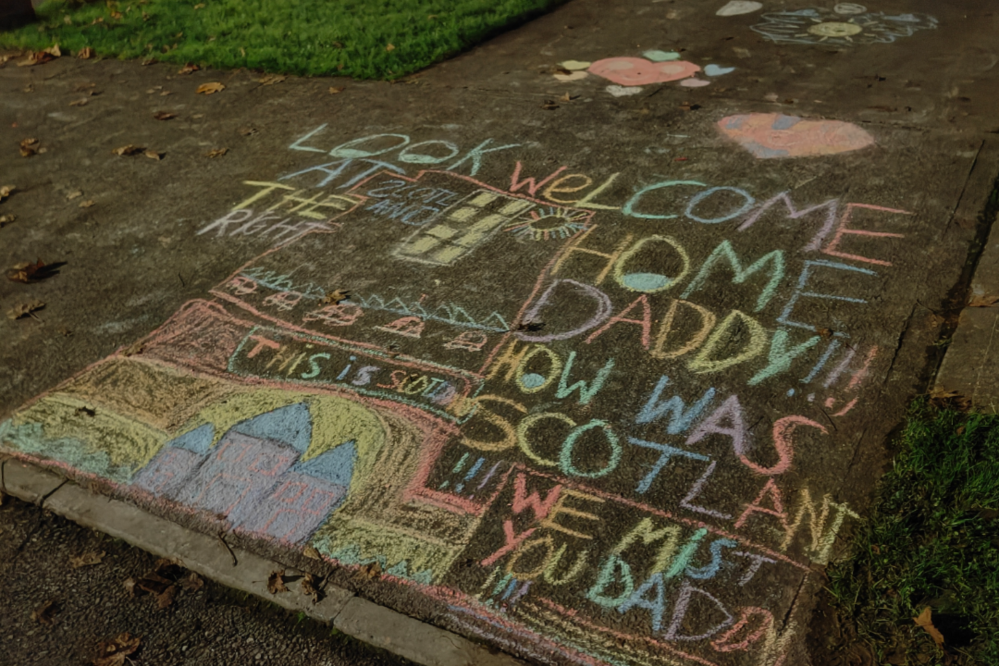 LOOK
AT
THE
RIGHT
WeLCOME
HOME
DADDY!!!!
HOW WAS
SCOTLANT
!!!
WE MIST
YOU DADDY
!!!
THIS iS